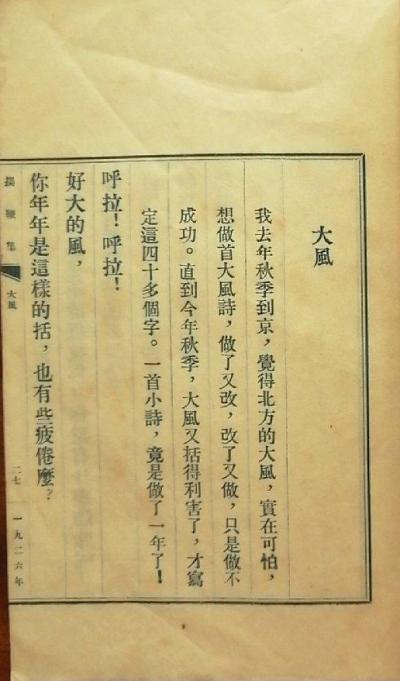 大風
我去年秋季到京，覺得北方的大風，實在可怕，
想做首大風詩，做了又改，改了又做，只是做不
成功。直到今年秋季，大風又括得利害了，才寫
定這四十多個字。一首小詩，竟是做了一年了！
呼拉！呼拉！
好大的風，
你年年是這樣的括，也有些疲倦麼？
揚鞭集
大風
二七
一九二六年